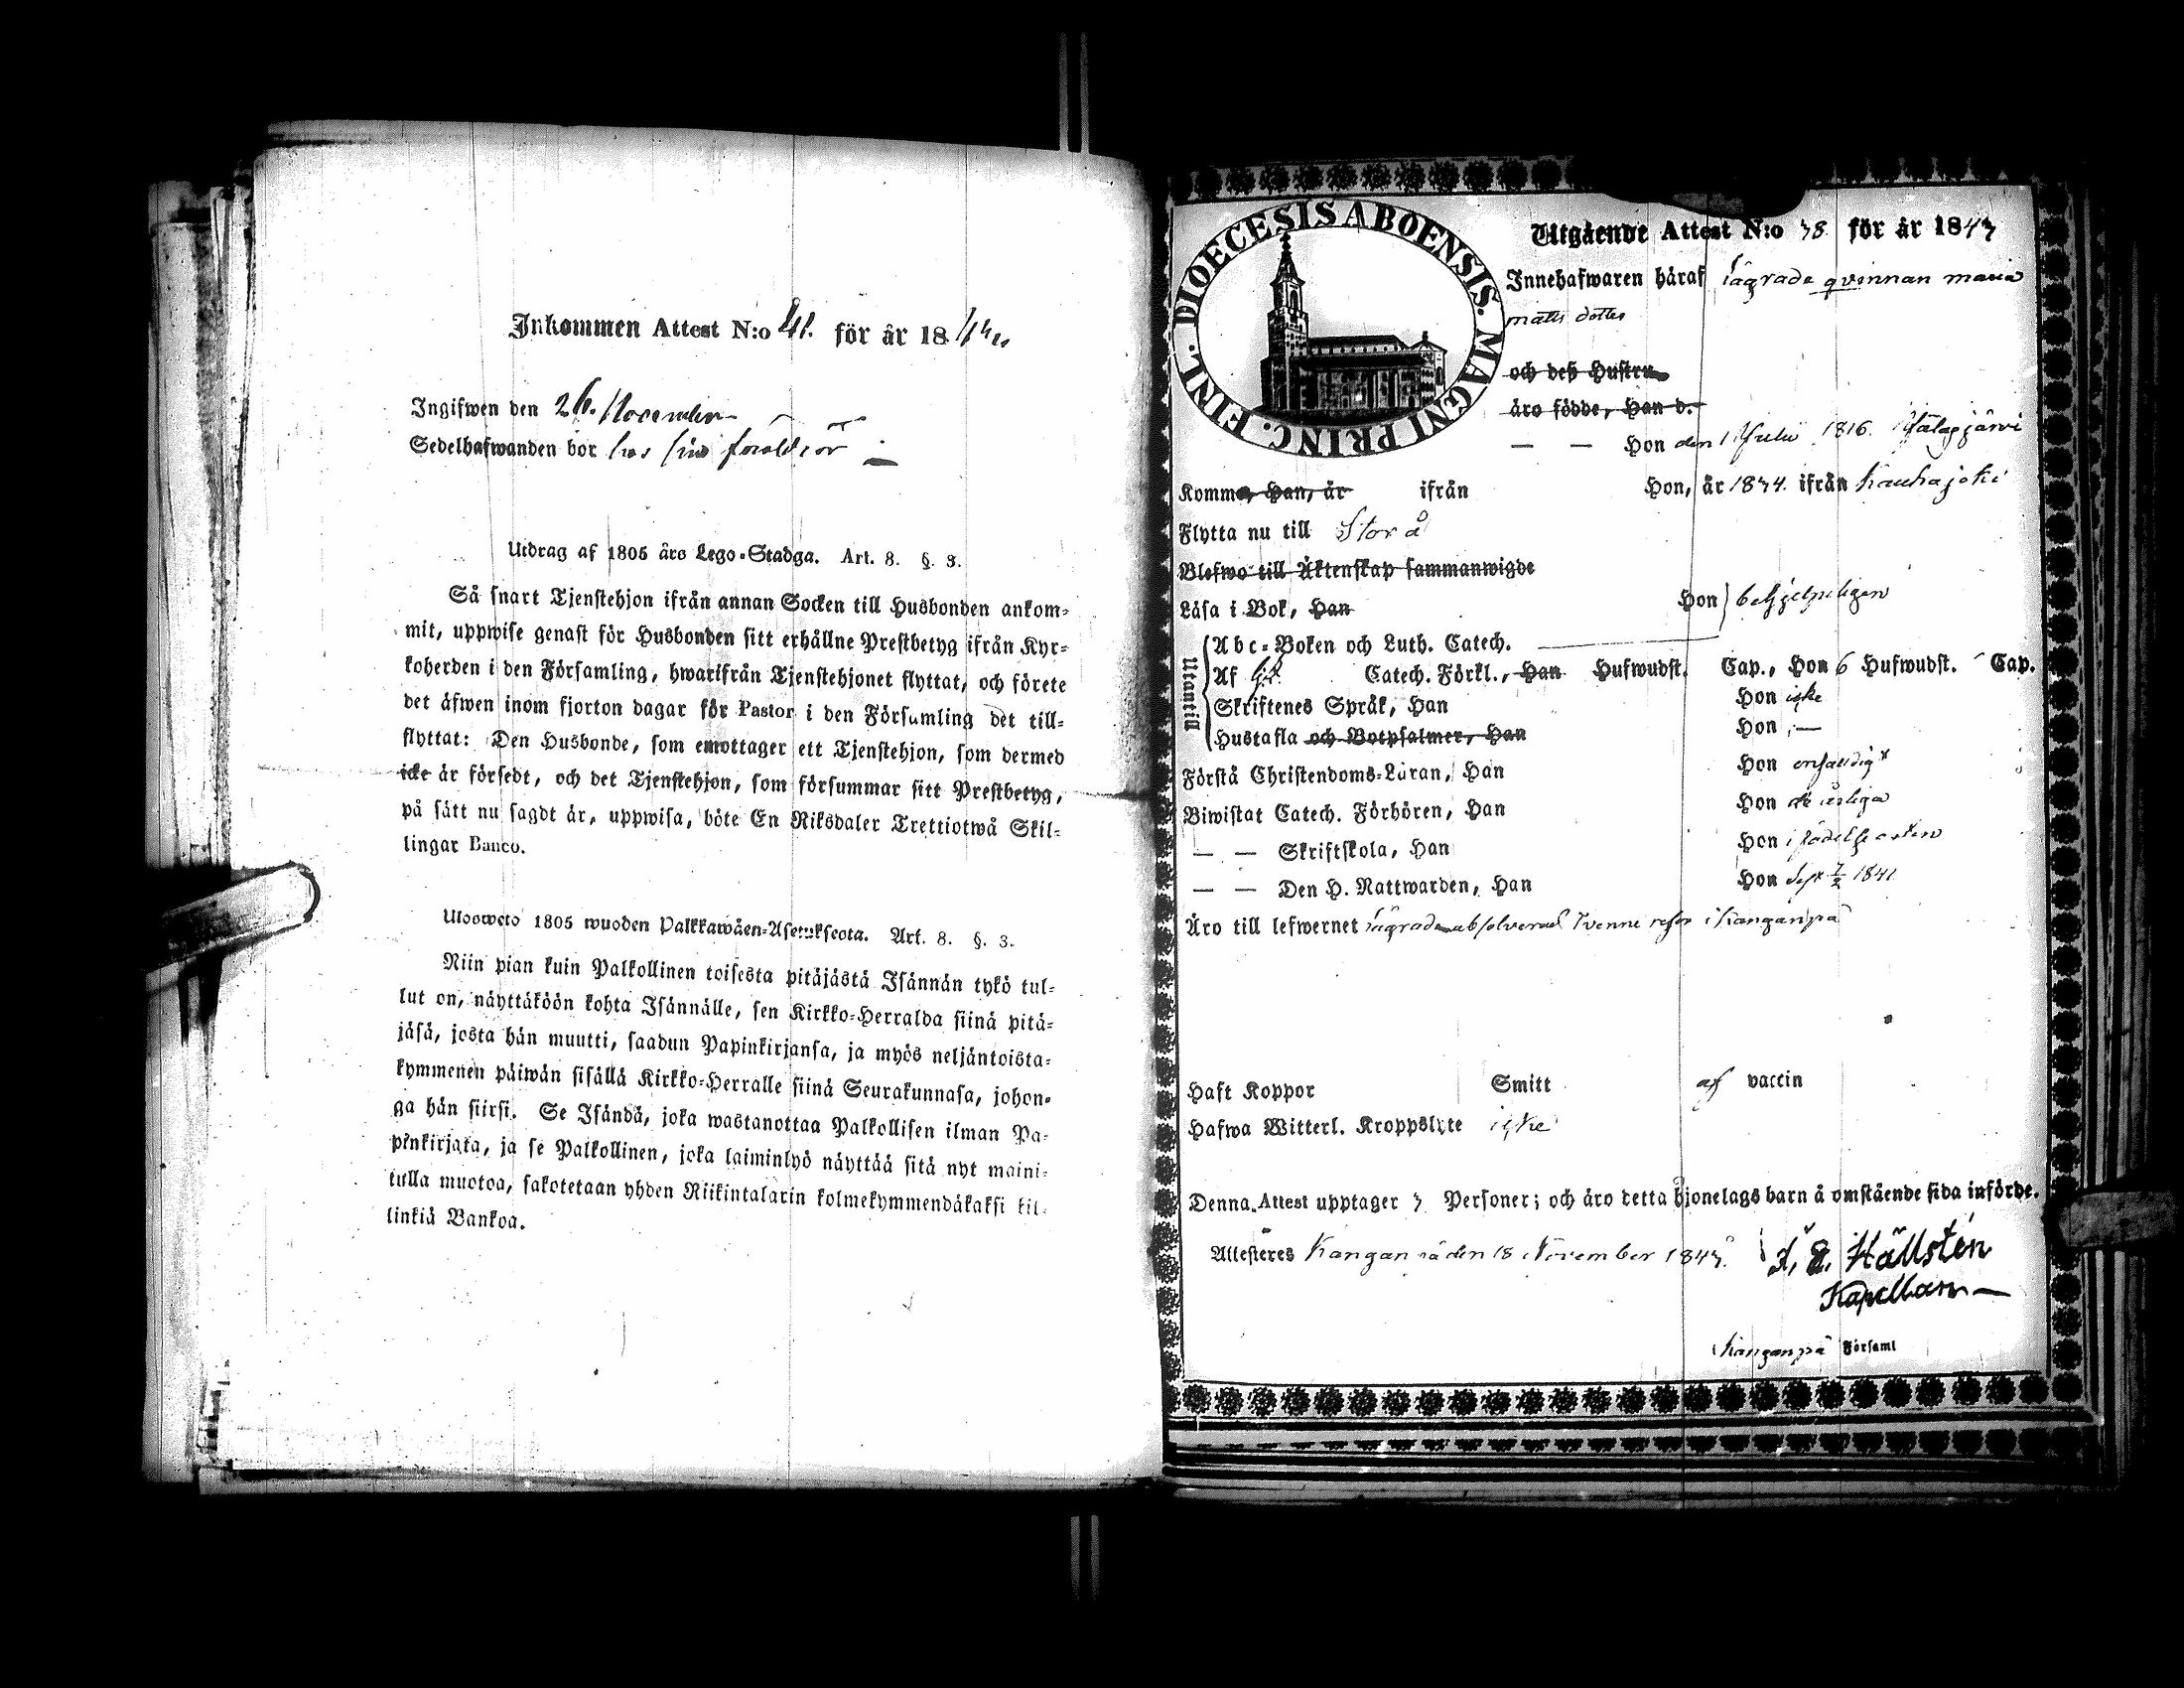 Inkommen Attest N:o 41. för år 18
Ingifwen den 26. November
Sedelhafwanden bor hos sina föräldrar
Utdrag af 1805 års Lego-Stadga. Art. 8. §. 3.
Så snart Tjenstehjon ifrån annan Socken till Husbonden ankom-
mit, uppwise genast för Husbonden sitt erhållne Prestbetyg ifrån Kyr-
koherden i den Församling, hwarifrån Tjenstehjonet flyttat, och förete
det äfwen inom fjorton dagar för Pastor i den Församling det till-
flyttat: Den Husbonde, som emottager ett Tjenstehjon, som dermed
icke är försedt, och det Tjenstehjon, som försummar sitt Prestbetyg,
på sätt nu sagdt är, uppwisa, böte En Riksdaler Trettiotwå Skil-
lingar Banco.
Ulosweto 1805 wuoden Palkkawäen-Asetuksesta. Art. 8. §. 3.
Niin pian kuin Palkollinen toisesta pitäjästä Isännän tykö tul-
lut on, näyttäköön kohta Isännälle, sen Kirkko-Herralda siinä pitä-
jäsä, josta hän muutti, saadun Papinkirjansa, ja myös neljäntoista-
kymmenen päiwän sisällä Kirkko-Herralle siinä Seurakunnasa, johon-
ga hän siirsi. Se Isändä, joka wastanottaa Palkollisen ilman Pa-
pinkirjata, ja se Palkollinen, joka laiminlyö näyttää sitä nyt maini-
tulla muotoa, sakotetaan yhden Riikintalarin kolmekymmendäkaksi kil-
linkiä Bankoa.
DIOECESIS ABOENSIS. MAGNI PRINC. FINL.
Utgående Attest N:o 38 för år 1843
Innehafwaren häraf lägrade qvinnan maria
matts dotter
och deß Hustru
äro födde, Han d.
— — Hon den 1 Julii 1816. Jalasjärvi
Komma, Han, år ifrån Hon, år 1834. ifrån Kauhajoki
Flytta nu till Storå
Blefwo till Äktenskap sammanwigde
Läsa i Bok, Han Hon behjelpeligen
Utantill
Abc-Boken och Luth. Catech.
Af Catech. Förkl., Han Hufwudst. Cap., Hon 6 Hufwudst. Cap.
Skriftenes Språk, Han Hon icke
Hustafla och Botpsalmer, Han Hon —
Förstå Christendoms-Läran, Han Hon enfaldigt
Biwistat Catech. Förhören, Han Hon de årliga
— — Skriftskola, Han Hon i födelseorten
— — Den H. Nattwarden, Han Hon 1841
Äro till lefwernet lägrade absolverad tvenne resor i Kanganpä
Haft Koppor Smitt af vaccin
Hafwa Witterl. Kroppslyte icke
Denna Attest upptager 3 Personer; och äro detta Hjonelags barn å omstående sida införde.
Attesteres Kanganpä den 18 November 1843. Hällstén
Kapellan
Kanganpä Församl